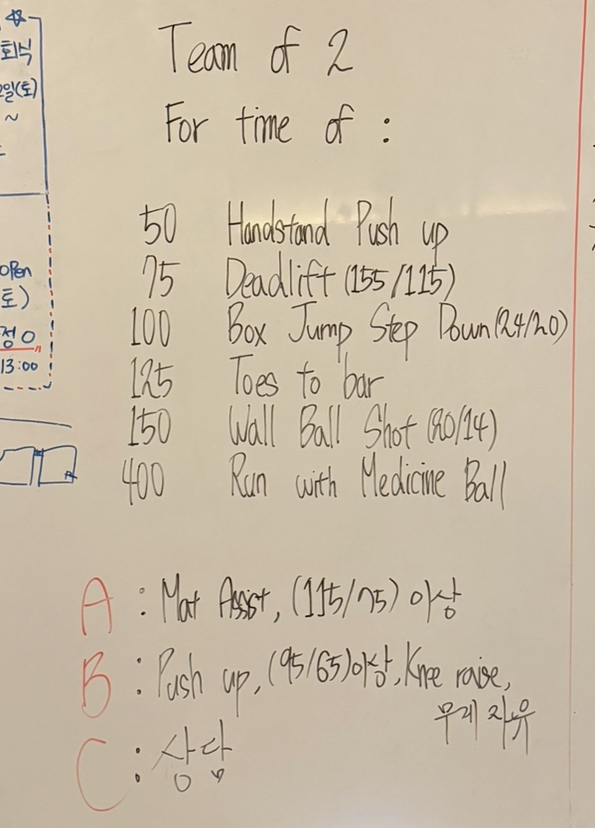 회식
일(토)
~
open
토)
정 0
13:00
Team of 2
For time of :
50 Handstand Push up
75 Deadlift (155/115)
100 Box Jump Step Down (24/20)
125 Toes to bar
150 Wall Ball Shot (20/14)
400 Run with Medicine Ball
A : Mat Assist, (115/75) 이상
B : Push up, (95/65)이상, Knee raise,
무게 자유
C : 상담